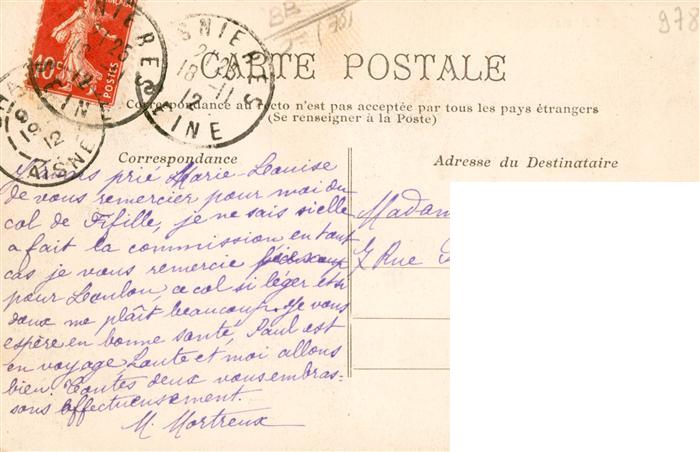 BB
(75)
978
10c POSTES
ASNIERES
21 25
18 - 11
12
SEINE
AISNE
CARTE POSTALE
Correspondance au recto n'est pas acceptée par tous les pays étrangers
(Se renseigner à la Poste)
Correspondance
Adresse du Destinataire
J'avais prié Marie Louise
de vous remercier pour moi du
col de Fifille, je ne sais si elle
a fait la commission en tout
cas je vous remercie beaucoup
pour Loulou, ce col si léger et si
doux me plaît beaucoup. Je vous
espère en bonne santé, Paul est
en voyage, et moi allons
bien. Toutes deux vous embras-
sons affectueusement.
M. Mortreux
Madam
7 Rue